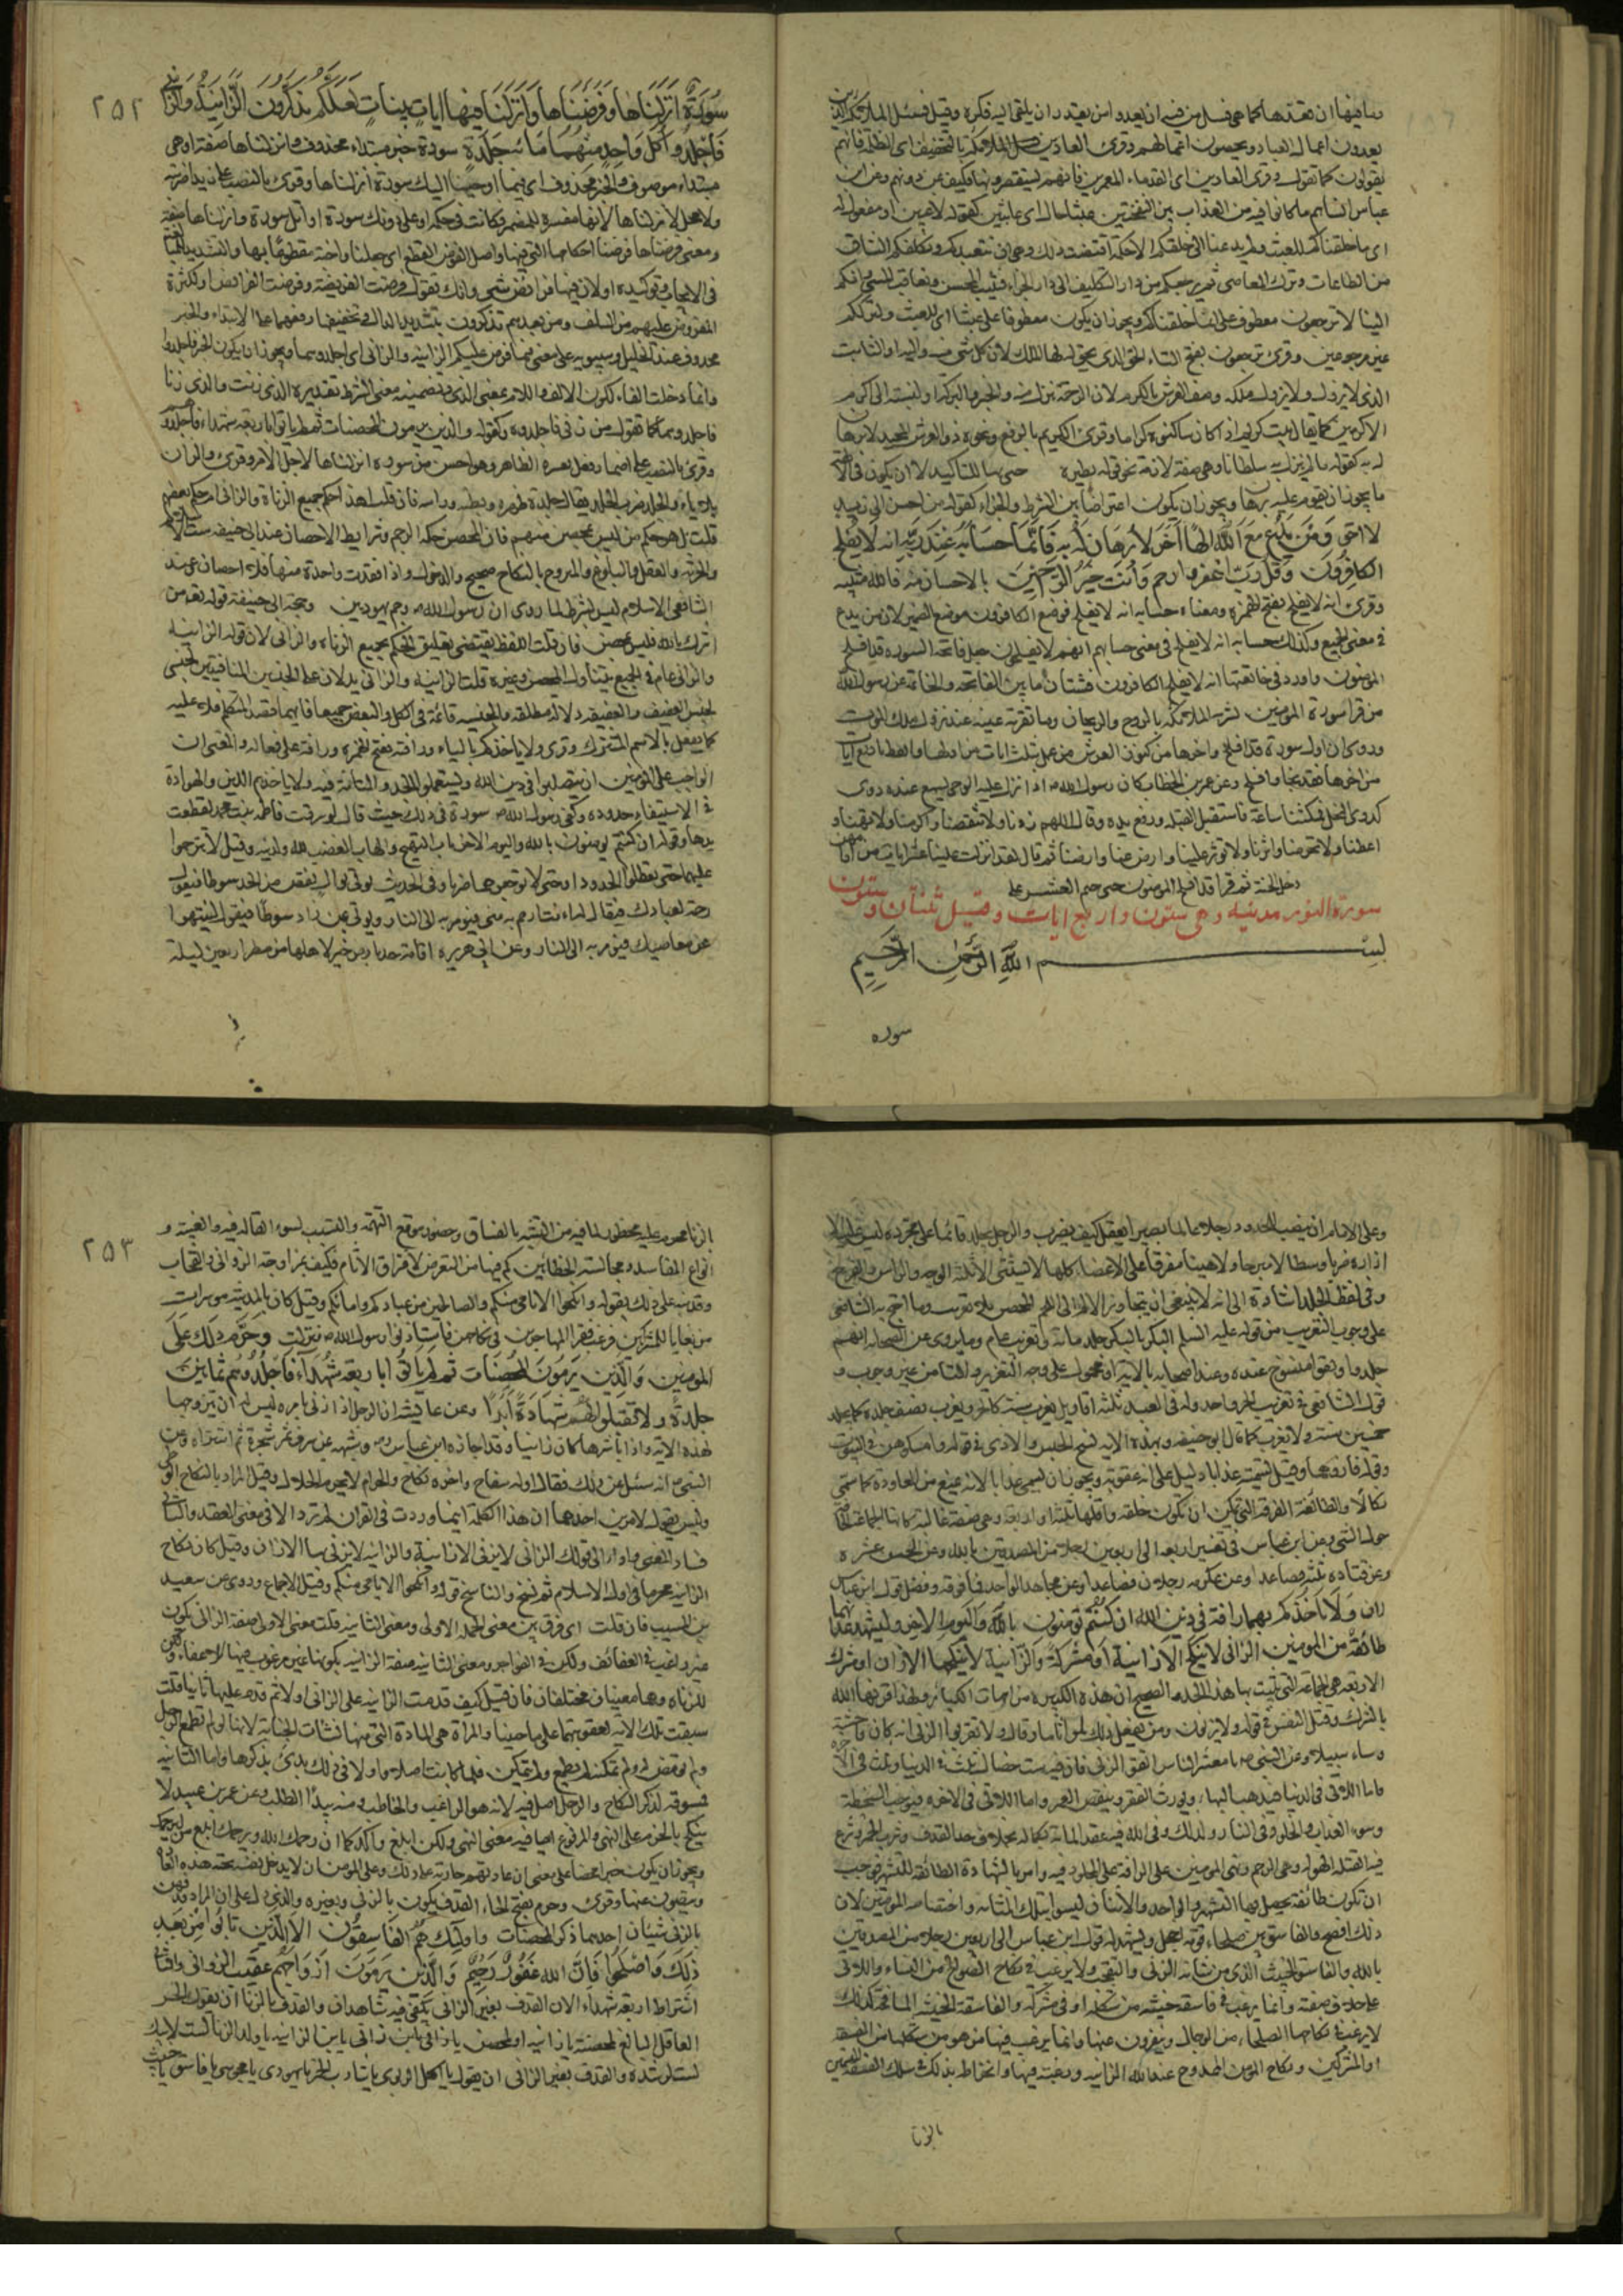 يعدون اعمال العباد ويحصون اعمالهم وقرئ العادين بالتخفيف اى الظلمة فانهم
يقولون كما نقول وقرئ العاديين اى القدماء المعمرين فانهم يستقصرونها فكيف عن دونهم وعن ابن
عباس انساهم ما كانوا فيه من العذاب بين النفختين عبثا حال اى عابثين كقوله لاعبين او مفعول له
اى ما خلقناكم للعبث ولم يدعنا الى خلقكم الا حكمة اقتضت ذلك وهى ان نتعبدكم ونكلفكم المشاق
من الطاعات وترك المعاصى ثم نرجعكم من دار التكليف الى دار الجزاء فنثيب المحسن ونعاقب المسئ وانكم
الينا لا ترجعون معطوف على انما خلقناكم ويجوز ان يكون معطوفا على عبثا اى للعبث ولترككم
غير مرجوعين وقرئ ترجعون بفتح التاء الحق الذى يحق له الملك لان كل شئ منه واليه او الثابت
الذى لا يزول ولا يزول ملكه وصف العرش بالكرم لان الرحمة تنزل منه والخير والبركة او لنسبته الى اكرم
الاكرمين كما يقال بيت كريم اذا كان ساكنوه كراما وقرئ الكريم بالرفع ونحوه ذو العرش المجيد لا برهان
له به كقوله ما لم ينزل به سلطانا وهى صفة لازمة نحو قوله يطير بجناحيه جئ بها للتأكيد لا ان يكون فى الآلهة
ما يجوز ان يقوم عليه برهان ويجوز ان يكون اعتراضا بين الشرط والجزاء كقوله من احسن الى زيد
لا احق ومن يدع مع الله الها اخر لا برهان له به فانما حسابه عند ربه انه لا يفلح
الكافرون وقل رب اغفر وارحم وانت خير الراحمين بالاحسان منه فالله مثيبه
وقرئ انه لا يفلح بفتح الهمزة ومعناه حسابه انه لا يفلح فوضع الكافرون موضع الضمير لان من يدع
فى معنى الجميع وكذلك حسابه انه لا يفلح فى معنى حسابهم انهم لا يفلحون جعل فاتحة السورة قد افلح
المؤمنون واورد فى خاتمتها انه لا يفلح الكافرون فشتان ما بين الفاتحة والخاتمة عن رسول الله
من قرا سورة المؤمنين بشرته الملائكة بالروح والريحان وما تقر به عينه عند نزول ملك الموت
وروى ان اول سورة قد افلح واخرها من كنوز العرش من عمل بثلث ايات من اولها واتعظ باربع ايات
من اخرها فقد نجا وافلح وعن عمر بن الخطاب كان رسول الله اذا نزل عليه الوحى يسمع عنده دوى
كدوى النحل فمكثنا ساعة فاستقبل القبلة ورفع يده وقال اللهم زدنا ولا تنقصنا واكرمنا ولا تهنا و
اعطنا ولا تحرمنا واثرنا ولا تؤثر علينا وارض عنا وارضنا ثم قال لقد انزلت علينا عشر ايات من اقامهن
دخل الجنة ثم قرا قد افلح المؤمنون حتى ختم العشر
سورة النور مدنية وهى ستون واربع ايات وقيل ثنتان وستون
بسم الله الرحمن الرحيم
سوره
٢٥٢
سورة انزلناها وفرضناها وانزلنا فيها ايات بينات لعلكم تذكرون الزانية والزانى
فاجلدوا كل واحد منهما مائة جلدة سورة خبر مبتداء محذوف وانزلناها صفة او هى
مبتداء موصوف والخبر محذوف اى فيما اوحينا اليك سورة انزلناها وقرئ بالنصب على زيدا ضربته
ولا محل لانزلناها لانها مفسرة للمضمر فكانت فى حكمه او على دونك سورة او اتل سورة وانزلناها صفة
ومعنى فرضناها فرضنا احكامها التى فيها واصل الفرض القطع اى جعلناها واجبة مقطوعا بها والتشديد للمبالغة
فى الايجاب وتوكيده او لان فيها فرائض شتى وانك تقول فرضت الفريضة وفرضت الفرائض او لكثرة
المفروض عليهم من السلف ومن بعدهم تذكرون بتشديد الذال وتخفيفها رفعهما على الابتداء والخبر
محذوف عند الخليل وسيبويه على معنى فيما فرض عليكم الزانية والزانى اى جلدهما ويجوز ان يكون الخبر فاجلدوا
وانما دخلت الفاء لكون الالف واللام بمعنى الذى وتضمينه معنى الشرط تقديره التى زنت والذى زنا
فاجلدوهما كما تقول من زنى فاجلدوه وكقوله والذين يرمون المحصنات ثم لم ياتوا باربعة شهداء فاجلدوهم
وقرئ بالنصب على اضمار فعل يفسره الظاهر وهو احسن من سورة انزلناها لاجل الامر وقرئ والزان
بلا ياء والجلد ضرب الجلد يقال جلده كظهره وبطنه وراسه فان قلت اهذا حكم جميع الزناة والزانى ام حكم بعضهم
قلت بل هو حكم من ليس بمحصن منهم فان المحصن حكمه الرجم وشرائط الاحصان عند ابى حنيفة ست الاسلام
والحرية والعقل والبلوغ والتزوج بالنكاح صحيح والدخول واذا فقدت واحدة منها فلا احصان عند
الشافعى الاسلام ليس بشرط لما روى ان رسول الله رجم يهوديين وحجة ابى حنيفة قوله من
اشرك بالله فليس بمحصن فان قلت اللفظ يقتضى تعليق الحكم بجميع الزناة والزانى لان قوله الزانية
والزانى عام فى الجميع يتناول المحصن وغيره قلت الزانية والزانى يدلان على الجنسين المنافيين لجنسى
العفيف والعفيفة دلالة مطلقة والجنسية قائمة فى الكل والبعض جميعا فايهما قصد المتكلم فلا عليه
كما يفعل بالاسم المشترك وقرئ ولا ياخذكم بالياء ورافة بفتح الهمزة ورافة على فعالة والمعنى ان
الواجب على المؤمنين ان يتصلبوا فى دين الله ويستعملوا الجد والمتانة فيه ولا ياخذهم اللين والهوادة
فى الاستيفاء حدوده وكفى برسول الله سورة فى ذلك حيث قال لو سرقت فاطمة بنت محمد لقطعت
يدها وقوله ان كنتم تؤمنون بالله واليوم الاخر من باب التهييج والهاب الغضب لله ولدينه وقيل لا تترحموا
عليهما حتى تعطلوا الحدود او حتى لا توجعوهما ضربا وفى الحديث يؤتى بوال نقص من الحد سوطا فيقول
رحمة لعبادك فيقال له اانت ارحم بهم منى فيؤمر به الى النار ويؤتى بمن زاد سوطا فيقول لينتهوا
عن معاصيك فيؤمر به الى النار وعن ابى هريرة اقامة حد بارض خير لاهلها من مطر اربعين ليلة
وعلى الامام ان ينصب للحدود رجلا عالما بصيرا يعقل كيف يضرب والرجل يجلد قائما على تجرده ليس عليه الا
ازاره ضربا وسطا لا مبرحا ولا هينا مفرقا على الاعضاء كلها لا يستثنى الا ثلثة الوجه والراس والفرج
وفى لفظ الجلد اشارة الى انه لا ينبغى ان يتجاوز الالم الى اللحم للمحصن بلا تغريب وما احتج به الشافعى
على وجوب التغريب من قوله عليه السلم البكر بالبكر جلد مائة وتغريب عام وما يروى عن الصحابة انهم
جلدوا ونفوا منسوخ عنده وعند اصحابه بالاية او محمول على وجه التعزير والتاديب من غير وجوب و
قول الشافعى فى تغريب الحر واحد وله فى العبد ثلثة اقاويل يغرب سنة كالحر ويغرب نصف سنة كما يجلد
خمسين ولا يغرب كما قال ابو حنيفة وبهذه الاية نسخ الحبس والاذى فى قوله فامسكوهن فى البيوت
وقوله فاذوهما وقيل تسميته عذابا دليل على انه عقوبة ويجوز ان يسمى عذابا لانه يمنع من المعاودة كما سمى
نكالا والطائفة الفرقة التى يمكن ان تكون حلقة واقلها ثلثة او اربعة وهى صفة غالبة كانها الجماعة الحافة
حول الشئ وعن ابن عباس فى تفسيرها اربعة الى اربعين رجلا من المصدقين بالله وعن الحسن عشرة
وعن قتادة ثلثة فصاعدا وعن عكرمة رجلان فصاعدا وعن مجاهد الواحد فما فوقه وفضل قول ابن عباس
لان ولا تاخذكم بهما رافة فى دين الله ان كنتم تؤمنون بالله واليوم الاخر وليشهد عذابهما
طائفة من المؤمنين الزانى لا ينكح الا زانية او مشركة والزانية لا ينكحها الا زان او مشرك
الاربعة هى الجماعة التى تثبت بها هذا الحد الصحيح ان هذه الكبيرة من امهات الكبائر ولهذا قرنها الله
بالشرك وقتل النفس فى قوله ولا يزنون ومن يفعل ذلك يلق اثاما وقال ولا تقربوا الزنى انه كان فاحشة
وساء سبيلا وعن النبى يا معشر الناس اتقوا الزنى فان فيه ست خصال ثلث فى الدنيا وثلث فى الاخرة
فاما اللاتى فى الدنيا فيذهب البهاء ويورث الفقر وينقص العمر واما اللاتى فى الاخرة فيوجب السخطة
وسوء العذاب والخلود فى النار ولذلك وفى الله فيه عقد المائة بكماله بخلاف حد القذف وشرب الخمر وشرع
فيه القتلة الهولة وهى الرجم ونهى المؤمنين على الرافة على المجلود فيه وامر بالشهادة الطائفة للتشهير فوجب
ان تكون طائفة يحصل بها التشهير والواحد والاثنان ليسوا بتلك المثابة واختصاصه المؤمنين لان
ذلك افضح والفاسق بين صلحاء قومه اخجل ويشهد له قول ابن عباس الى اربعين رجلا من المصدقين
بالله والفاسق الخبيث الذى من شانه الزنى والتقحب ولا يرغب فى نكاح الصوالح من النساء واللاتى
على خلاف صفته وانما يرغب فى فاسقة خبيثة من شكله او فى مشركة والفاسقة الخبيثة المسافحة كذلك
لا يرغب فى نكاحها الصلحاء من الرجال وينفرون عنها وانما يرغب فيها من هو من شكلها من الفسقة
او المشركين ونكاح المؤمن الممدوح عند الله الزانية ورغبته فيها وانخراطه بذلك فى سلك الفسقة المتسمين
بالزنا
٢٥٣
الزنا محرم عليه محظور لما فيه من التشبه بالفساق وحضور موقع التهمة والتسبب لسوء القالة فيه والغيبة و
انواع المفاسد ومجالسة الخطائين كم فيها من التعرض لاقتراف الاثام فكيف بمزاوجة الزوانى والقحاب
وقد نبه على ذلك بقوله وانكحوا الايامى منكم والصالحين من عبادكم وامائكم وقيل كان بالمدينة موسرات
من بغايا المشركين فرغب فقراء المهاجرين فى نكاحهن فاستاذنوا رسول الله فنزلت وحرم ذلك على
المؤمنين والذين يرمون المحصنات ثم لم ياتوا باربعة شهداء فاجلدوهم ثمانين
جلدة ولا تقبلوا لهم شهادة ابدا وعن عايشة ان الرجل اذا زنى بامراة ليس له ان يتزوجها
لهذه الاية واذا باشرها كان زانيا وقد اجازه ابن عباس وشبهه بمن سرق ثمر شجرة ثم اشتراه وعن
النبى انه سئل عن ذلك فقال اوله سفاح واخره نكاح والحرام لا يحرم الحلال وقيل المراد بالنكاح الوطئ
وليس بقول لامرين احدهما ان هذا الكلمة اينما وردت فى القران لم ترد الا فى معنى العقد والثانى
فساد المعنى واداؤه الى قولك الزانى لا يزنى الا بزانية والزانية لا يزنى بها الا زان وقيل كان نكاح
الزانية محرما فى اول الاسلام ثم نسخ والناسخ قوله وانكحوا الايامى منكم وقيل الاجماع وروى عن سعيد
بن المسيب فان قلت اى فرق بين معنى الجملة الاولى ومعنى الثانية قلت معنى الاولى صفة الزانى بكونه
غير راغب فى العفائف ولكن فى الفواجر ومعنى الثانية صفة الزانية بكونها غير مرغوب فيها للاعفاء ولكن
للزناة وهما معنيان مختلفان فان قيل كيف قدمت الزانية على الزانى اولا ثم قدم عليها ثانيا قلت
سيقت تلك الاية لعقوبتهما على ما جنيا والمراة هى المادة التى منها نشات الجناية لانها لو لم تطمع الرجل
ولم تومض له ولم تمكنه لم يطمع ولم يتمكن فلما كانت اصلا واولا فى ذلك بدئ بذكرها واما الثانية
فمسوقة لذكر النكاح والرجل اصل فيه لانه هو الراغب والخاطب ومنه يبدا الطلب وعن عمرو بن عبيد لا
ينكح بالجزم على النهى والمرفوع ايضا فيه معنى النهى ولكن ابلغ واكد كما ان رحمك الله ويرحمك ابلغ من ليرحمك
ويجوز ان يكون خبرا محضا على معنى ان عادتهم جارية على ذلك وعلى المؤمن ان لا يدخل نفسه تحت هذه العادة
ويتصون عنها وقرئ وحرم بفتح الحاء القذف يكون بالزنى وبغيره والذى دل على ان المراد قذفهن
بالزنى شيئان احدهما ذكر المحصنات واولئك هم الفاسقون الا الذين تابوا من بعد
ذلك واصلحوا فان الله غفور رحيم والذين يرمون ازواجهم عقيب الزوانى والثانى
اشتراط اربعة شهداء لان القذف بغير الزانى يكفى فيه شاهدان والقذف بالزنا ان يقول الحر
العاقل البالغ لمحصنة يا زانية او لمحصن يا زانى يا ابن زانى يا ابن الزانية يا ولد الزنا لست لابيك
لست لرشدة والقذف بغير الزانى ان يقول يا اكل الربوى يا شارب الخمر يا يهودى يا مجوسى يا فاسق يا خبيث